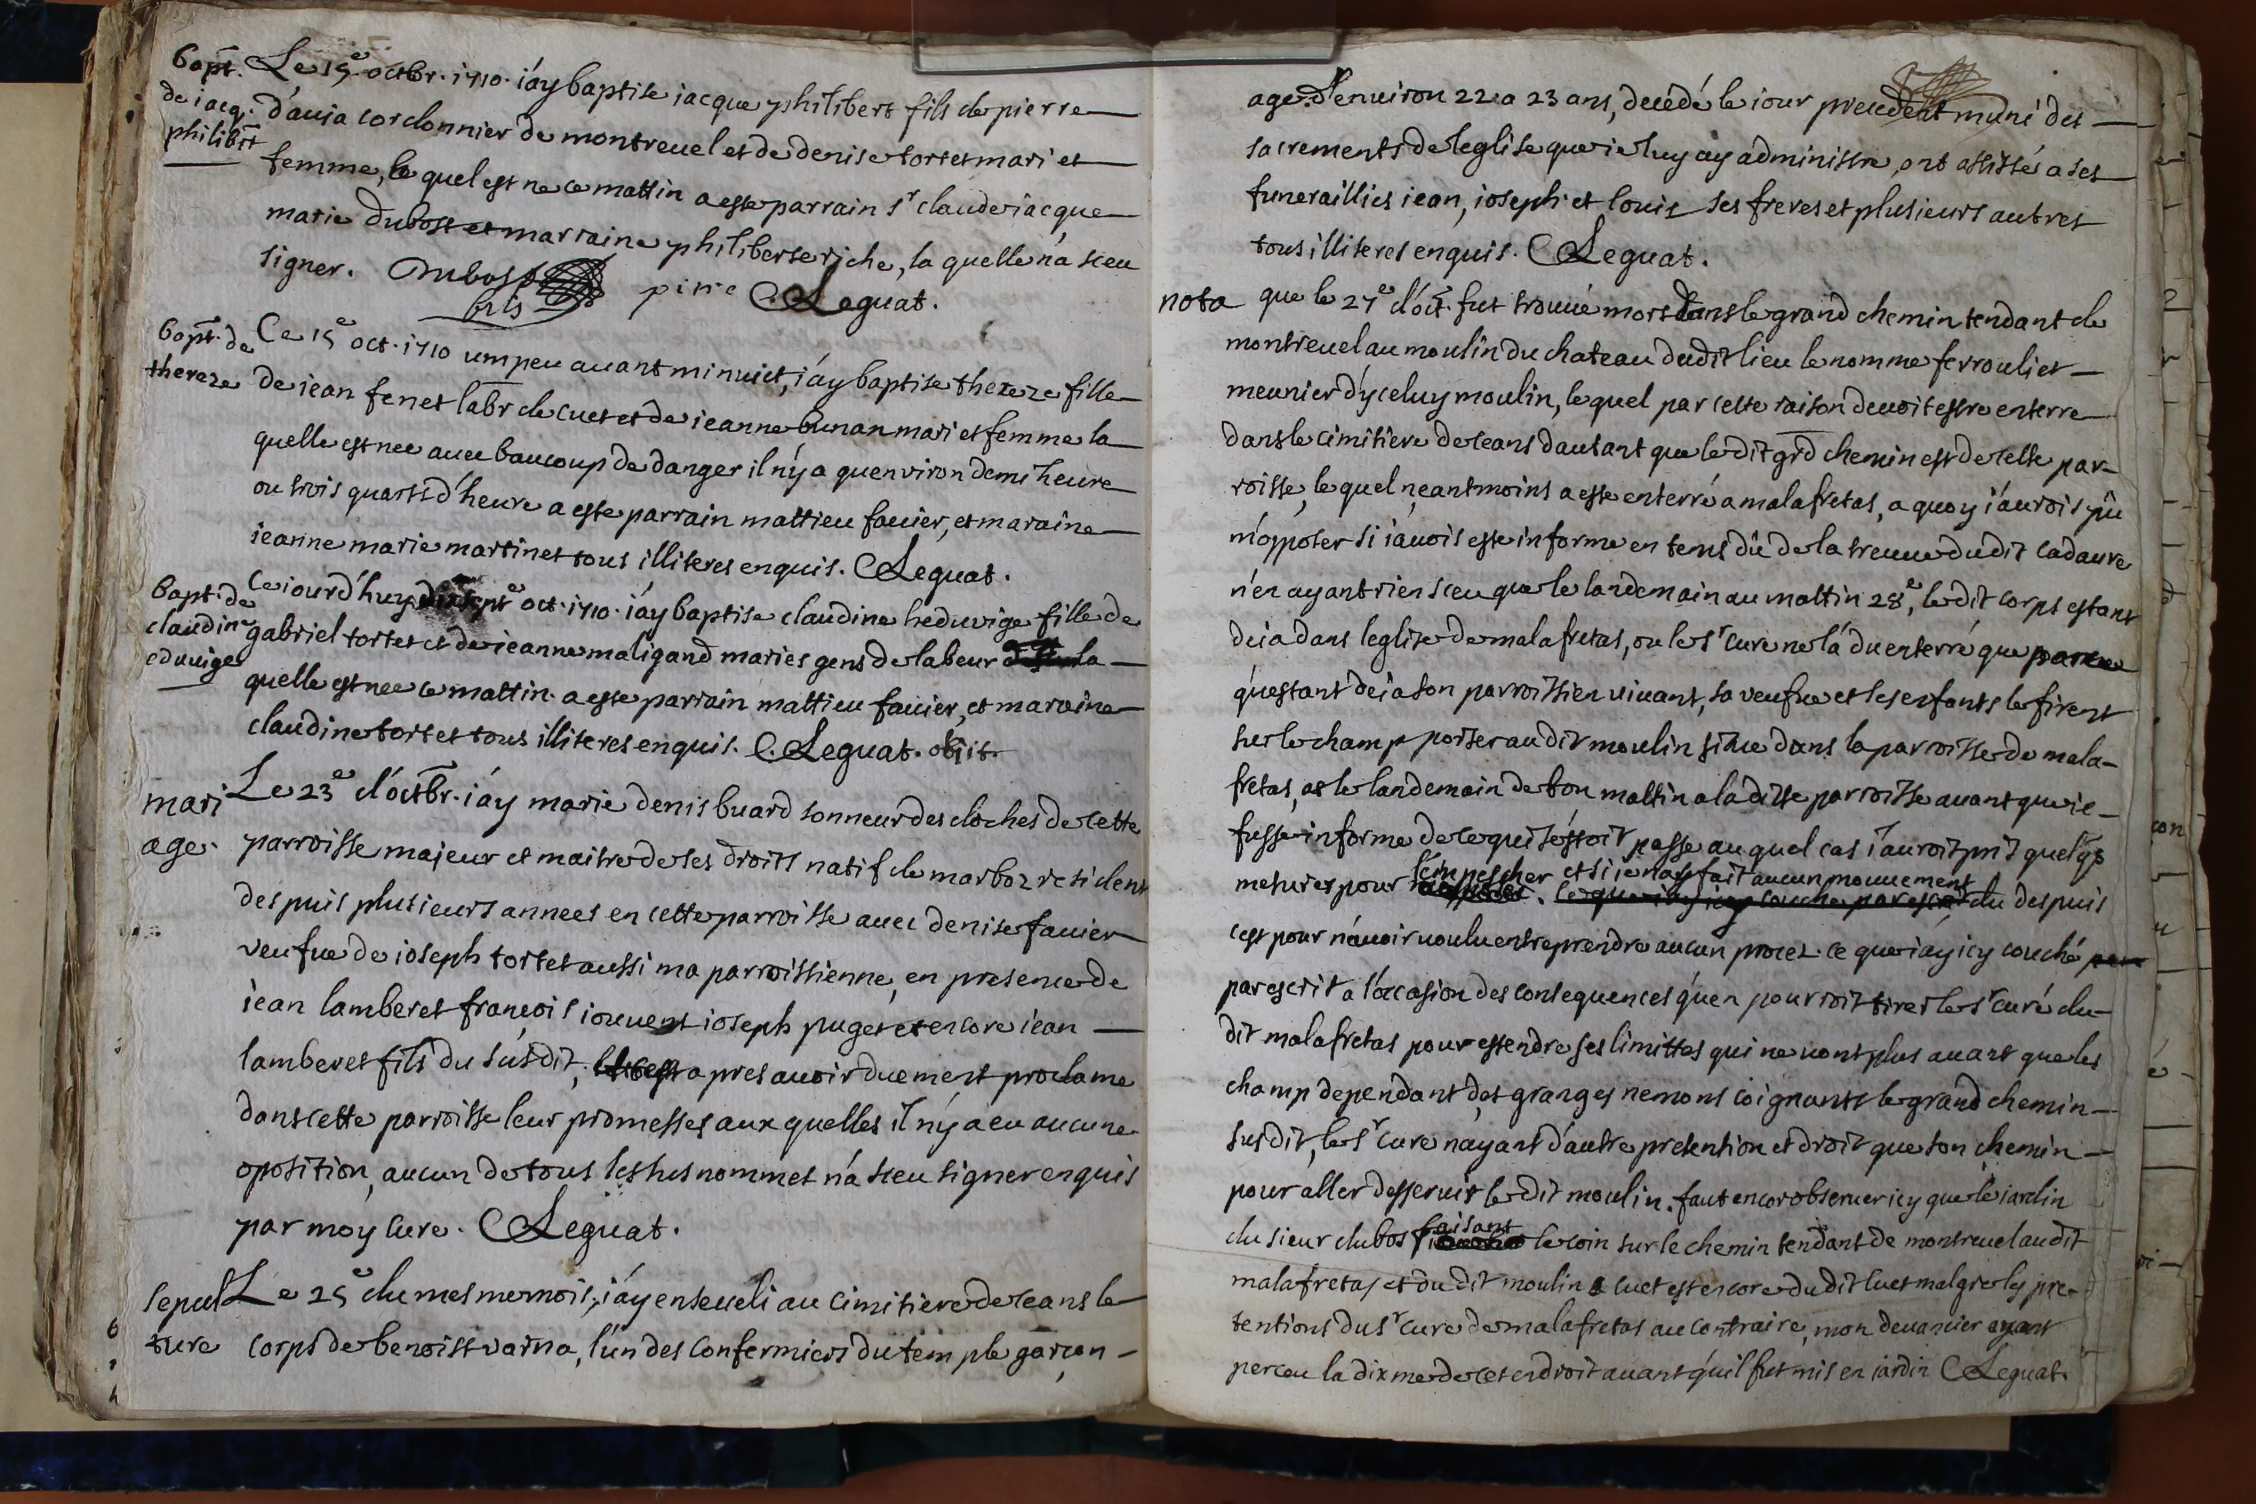 bapt. Le 15e octbr. 1710. i'ay baptise iacque philibert fils de pierre
de iacq. d'auia cordonnier de montreuel et de denise tortet mari et
philibrt femme, le quel est ne ce mattin a este parrain sr claude iacque
marie dubost et marraine philiberte riche, la quelle n'a sceu
signer. Dubost C. Leguat.
bapt. de Ce 15e oct. 1710 um peu auant minuict, i'ay baptise thereze fille
thereze de iean fenet labr de cuet et de ieanne bunan mari et femme la
quelle est nee auec baucoup de danger il n'y a quenviron demi heure
ou trois quarts d'heure a este parrain mattieu fauier, et maraine
ieanne marie martinet tous illiteres enquis. C Leguat.
bapt. de Ce iourd'huy oct. 1710. i'ay baptise claudine heduvige fille de
claudine gabriel tortet et de ieanne maligand maries gens de labeur la
eduuige quelle est nee ce mattin. a este parrain mattieu fauier, et maraine
claudine tortet tous illiteres enquis. C. Leguat. obiit.
mari Le 23e d'octbr. i'ay marie denis buard sonneur des cloches de cette
age. parroisse majeur et maitre de ses droits natif de marboz resident
despuis plusieurs annees en cette parroisse auec denise fauier
veufue de ioseph tortet aussi ma parroissienne, en presence de
iean lamberet françois iouuent ioseph puget et encore iean
lamberet fils du susdit, apres auoir duement proclame
dans cette parroisse leur promesses aux quelles il n'y a eu aucune
oposition, aucun de tous les susnommes n'a sceu signer enquis
par moy Cure. C Leguat.
sepul Le 25e du mesme mois, i'ay enseueli au Cimitiere de ceans le
ture corps de benoist varna, l'un des confermiers du temple garçon
age d'enuiron 22 a 23 ans, decedé le iour precedent muné des
sacrements de leglise que ie luy ay administre, ont assisté a ses
funeraillies iean, ioseph et louis ses freres et plusieurs autres
tous illiteres enquis. C Leguat.
nota que le 27e d'oct. fut trouué mort dans le grand chemin tendant de
montreuel au moulin du chateau dudit lieu le nomme ferrouliet
meunier d'yceluy moulin, le quel par cette raison deuoit estre enterre
dans le cimitiere de ceans dautant que le dit grd chemin est de cette par-
roisse, le quel neantmoins a este enterré a malafretas, a quoy i'aurois pû
m'opposer si i'auois este informe en tems dû de la treuue du dit cadavre
n'en ayant rien sceu que le landemain au mattin 28e, le dit corps estant
deia dans leglize de malafretas, ou le sr cure ne l'a du enterré que parce
qu'estant deia son parroissien viuant, sa veufue et les enfants le firent
sur le champ porter au dit moulin situe dans la parroisse de mala-
fretas, et le landemain de bon mattin a la ditte parroisse auant que ie
fusse informe de ce qui s'estoit passe au quel cas i'aurois prit quelqs
mesures pour l'empescher et si ie n'ay fait aucun mouuement du despuis
cest pour n'auoir voulu entreprendre aucun proces. ce que i'ay icy couché
par escrit a l'occasion des consequences qu'en pourroit tirer le sr curé du-
dit malafretas pour estendre ses limittes qui ne vont plus auant que les
champ dependant des granges nemons ioignants le grand chemin
susdit, le sr cure n'ayant d'autre pretention et droit que son chemin
pour aller desseruir le dit moulin. faut encor obseruer icy que le iardin
du sieur dubos faisant le coin sur le chemin tendant de montreuel audit
malafretas et du dit moulin a cuet est encore du dit cuet malgre les pre-
tentions du sr cure de malafretas au contraire, mon deuancier ayant
perceu la dixme de cet endroit auant qu'il fut mis en iardin C Leguat.